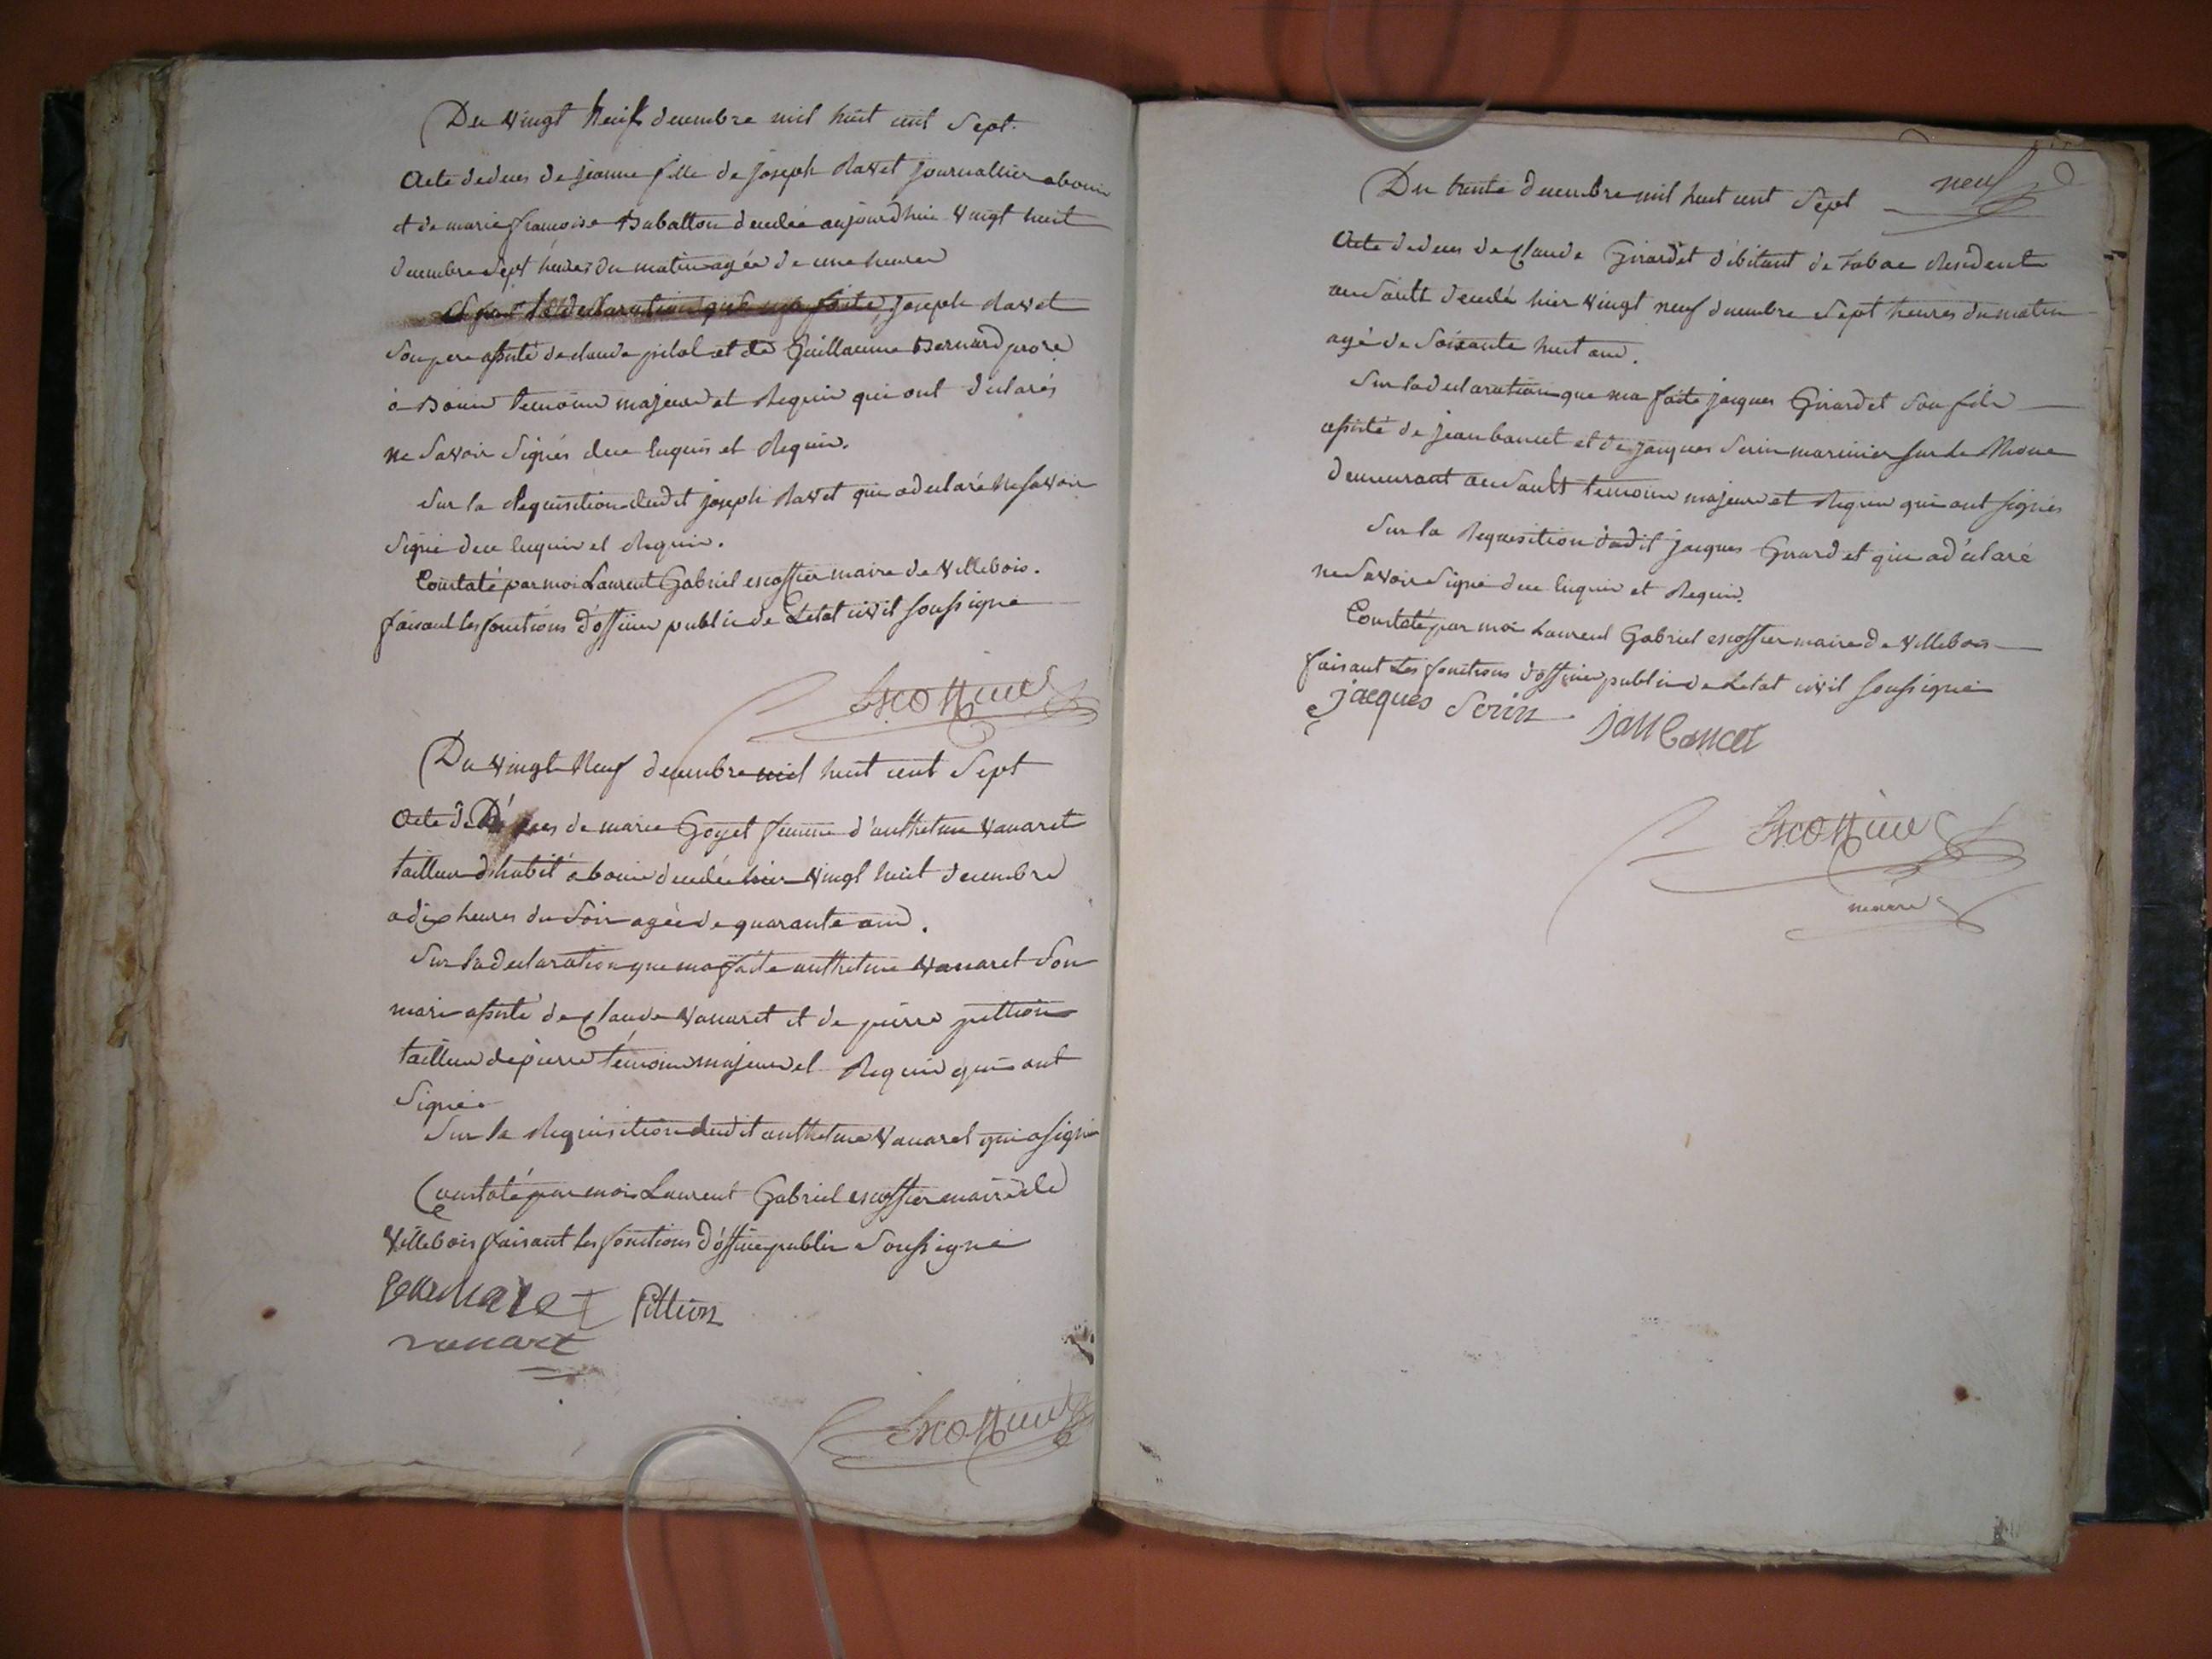 Du vingt Neuf decembre mil huit cent Sept.
Acte de deces de jeanne fille de joseph Ravet journallier a bouis
et de marie françoise Babolton decedée aujourd'hui vingt huit
decembre Sept heures du matin agée de une heures
joseph Ravet
Son pere assisté de claude pilal et de Guillaume Bernard
à Bouis temoins majeurs et Requis qui ont declarés
ne Savoir Signés dece enquis et Requis.
Sur la Requisition dudit joseph Ravet qui a declaré ne Savoir
Signé dece enquis et Requis.
Constaté par moi Laurent Gabriel escoffier maire de Villebois.
faisant les fonctions d'officier public de Letat civil Soussigné
Escoffier
Du vingt Neuf decembre mil huit cent Sept
Acte de Déces de marie Goyet femme d'anthelme Vanaret
tailleur d'habit a bouis decedée hier vingt huit decembre
a dix heures du Soir agée de quarante ans.
Sur la declaration que ma faite anthelme Vanaret Son
mari assisté de Claude Vanaret et de pierre pittion
tailleur de pierre témoins majeurs et Requis qui ont
Signés
Sur la Requisition dudit anthelme Vanaret qui a signé
Constaté par moi Laurent Gabriel escoffier maire de
Villebois faisant les fonctions d'officier public Soussigné
Pittion
vanaret
Escoffier
neuf
Du trente decembre mil huit cent Sept
Acte de deces de Claude Girardet débitant de tabac Resident
au Sault decedé hier vingt neuf decembre Sept heures du matin
agé de Soixante huit ans.
Sur la declaration que ma faite jacques Girardet Son fils
assisté de jean bancet et de jacques Serin marinier sur le Rhone
demeurant au Sault temoins majeurs et Requis qui ont signés
Sur la Requisition dudit jacques Girardet qui a déclaré
ne Savoir Signé dece enquis et Requis.
Constaté par moi Laurent Gabriel escoffier maire de Villebois
faisant Les fonctions d'officier public de Letat civil Soussigné
jacques Serin jan bancet
Escoffier
maire